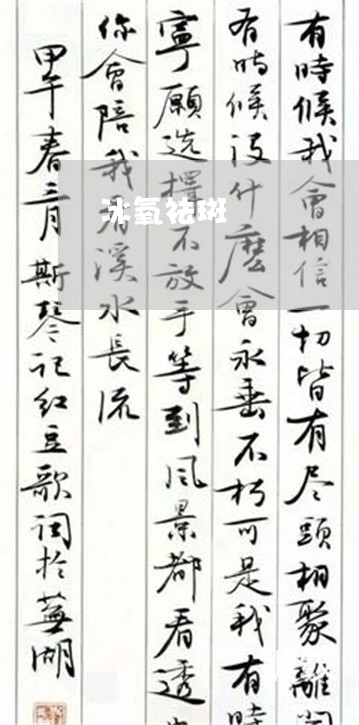 有時候我會相信一切皆有尽頭相聚離開
有時候没什麼會永垂不朽可是我有時
寧願选擇不放手等到风景都看透
你會陪我看溪水長流
甲午春三月斯琴记红豆歌词於蕪湖
冰氧祛斑